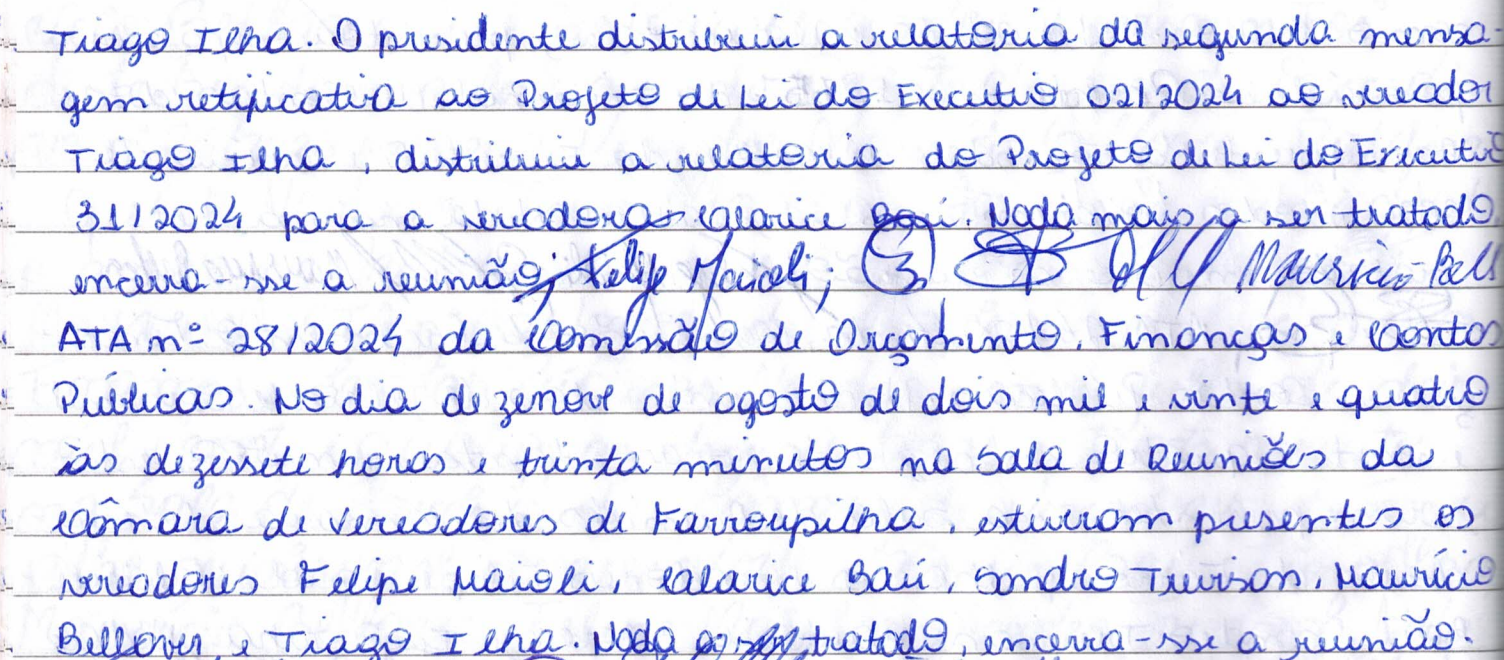 Tiago Ilha. O presidente distribuiu a relatoria da segunda mensa-
gem retificativa ao Projeto de Lei do Executivo 02/2024 ao vereador
Tiago Ilha, distribuiu a relatoria do Projeto de Lei do Executivo
31/2024 para a vereadora Clarice Baú. Nada mais a ser tratado
encerra-se a reunião; Felipe Maioli; Mauricio Bell
ATA nº 28/2024 da Comissão de Orçamento, Finanças e Contas
Públicas. No dia dezenove de agosto de dois mil e vinte e quatro
às dezessete horas e trinta minutos na Sala de Reuniões da
Câmara de Vereadores de Farroupilha, estiveram presentes os
vereadores Felipe Maioli, Clarice Baú, Sandro Trevisan, Maurício
Bellaver e Tiago Ilha. Nada a ser tratado, encerra-se a reunião.